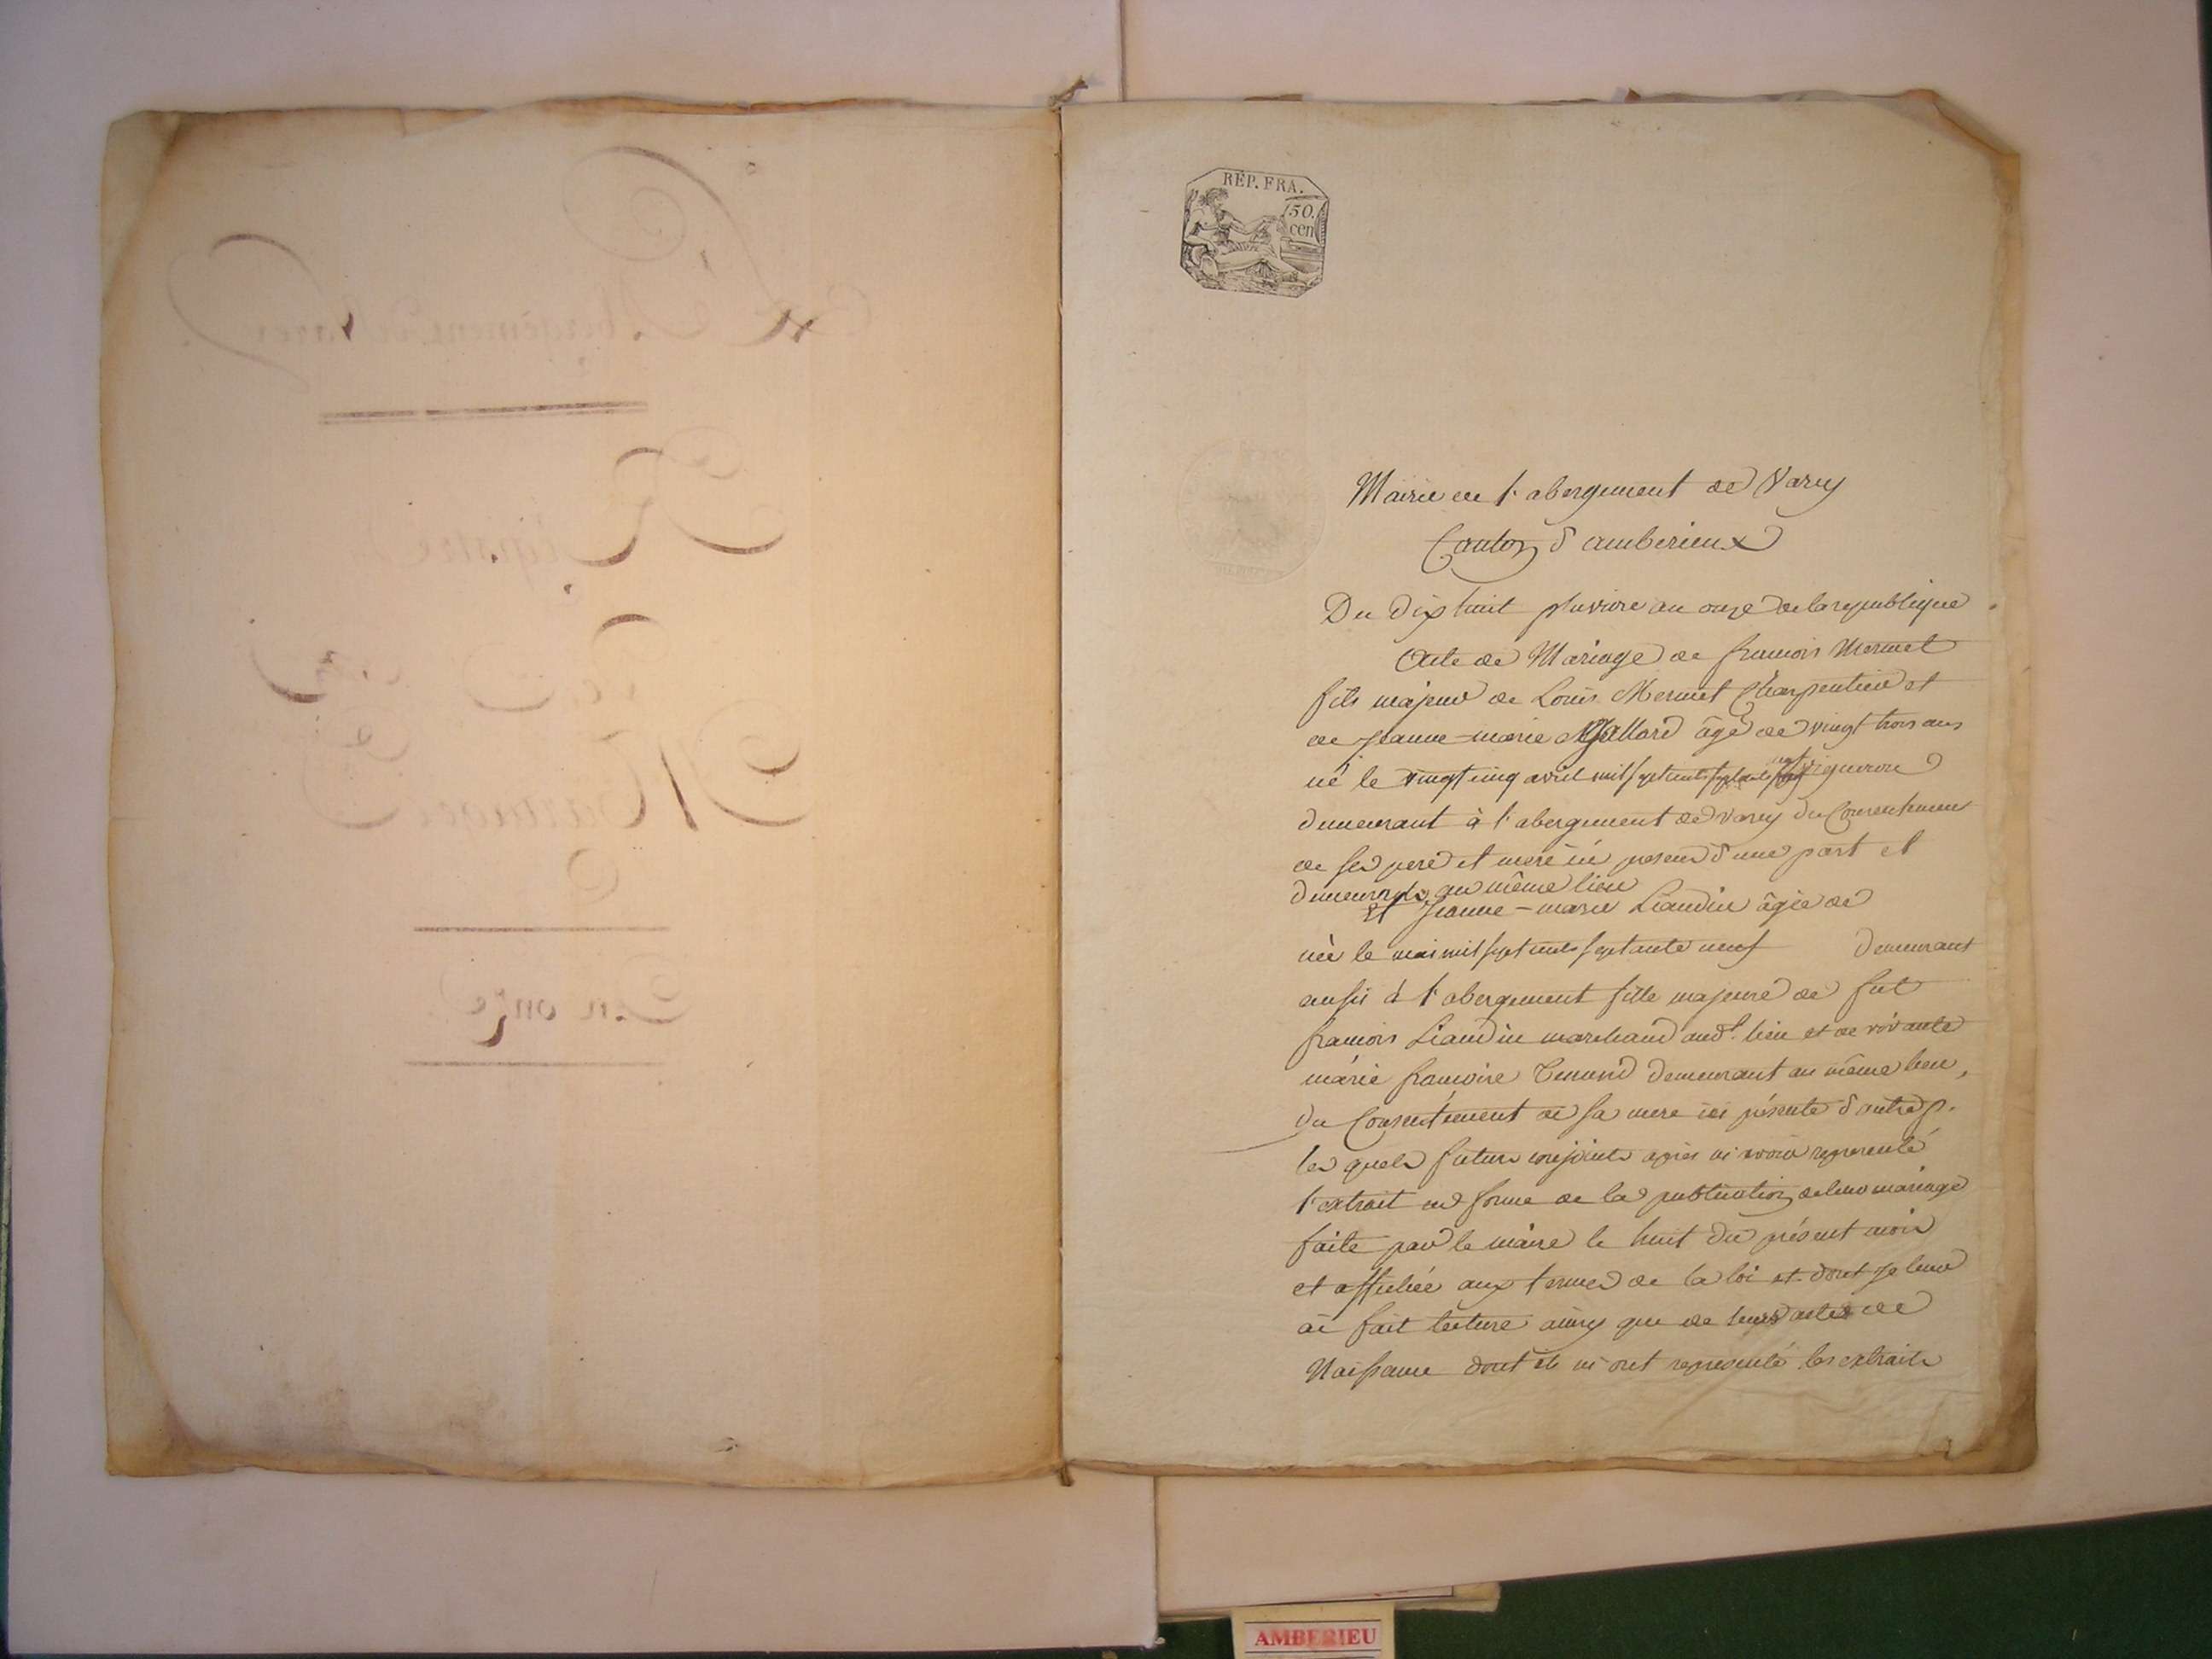 L'Abergement de Varey
Registre
de
Mariages
an onze
REP. FRA.
50.
cen
Mairie de l'abergement de Varey
Canton d'amberieux
Du dix huit pluviose an onze de la republique
Acte de Mariage de francois Mermet
fils majeur de Louis Mermet Charpentier et
de jeanne-marie Mallard âgé de vingt trois ans
né le vingt cinq avril mil sept cents septante neuf vigneron
demeurant à l'abergement de varey du Consentement
de ses pere et mere ici presens d'une part et
demeurants au même lieu
Et jeanne-marie Liaudin âgée de
née le mai mil sept cents septante neuf demeurant
aussi à l'abergement fille majeure de fut
francois Liaudin marchand aud.t lieu et de vivante
marie francoise demeurant au même lieu,
du Consentement de sa mere ici présente d'autre p.
les quels futurs conjoints après m'avoir representé
l'extrait en forme de la publication de leur mariage
faite par le maire le huit du présent mois
et affichée aux termes de la loi et dont je leur
ai fait lecture ainsy que de leurs actes de
Naissance dont ils m'ont representé les extraits
AMBERIEU